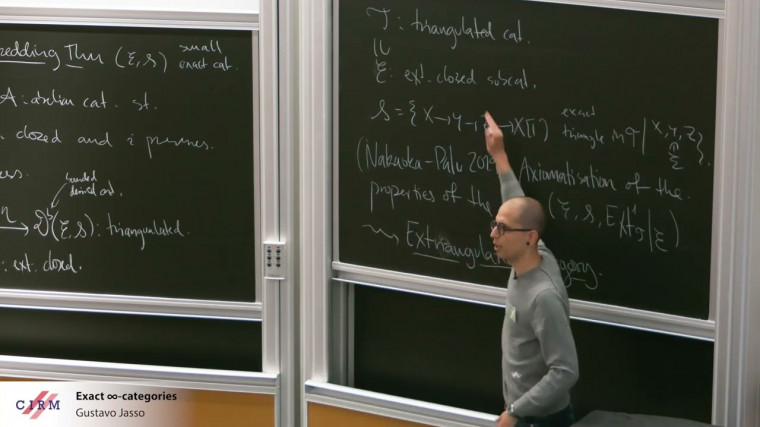 edding Thm (ξ, s) small
exact cat.
A: abelian cat. st.
closed and i
bounded
derived cat.
D^b(ξ, s): triangulated.
: ext. closed.
T: triangulated cat.
ξ: ext. closed subcat.
s = { X → Y → → X[1] exact
triangle in T | X, Y, Z
ξ
}.
(Nakaoka-Palu Axiomatisation of the
properties of the (ξ, s, Ext¹_T|ξ)
⇝ Extriangula
CIRM
Exact ∞-categories
Gustavo Jasso